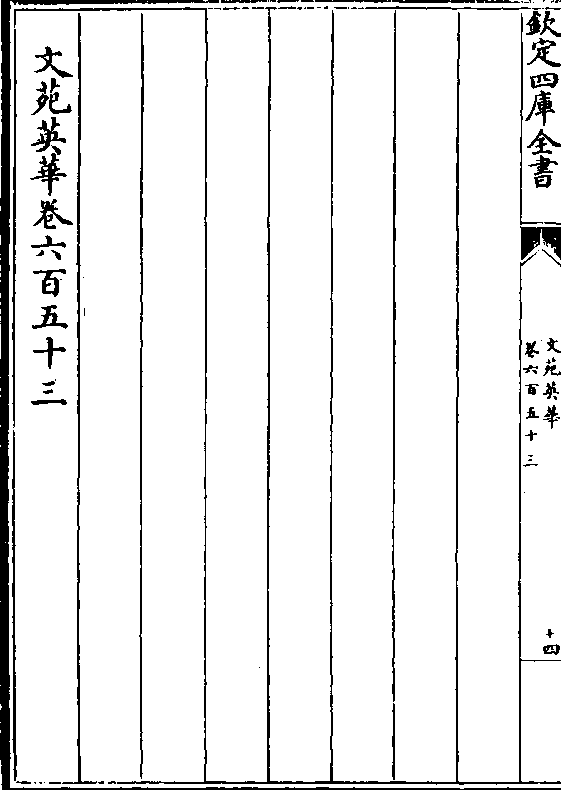 欽定四庫全書
文苑英華
卷六百五十三
十四
文苑英華卷六百五十三